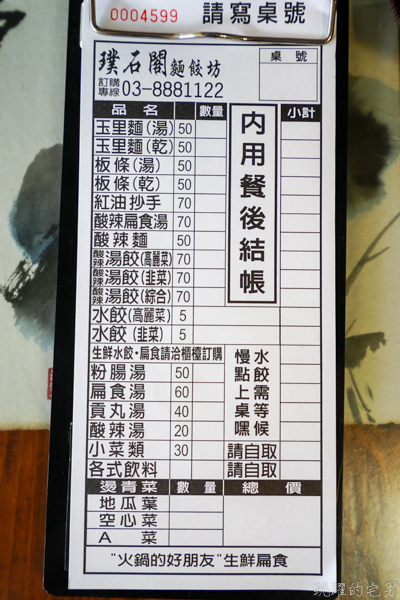 0004599 請寫桌號
璞石閣麵餃坊
訂購專線 03-8881122
桌號
品名 數量 小計
玉里麵(湯) 50
玉里麵(乾) 50
板條(湯) 50
板條(乾) 50
紅油抄手 70
酸辣扁食湯 70
酸辣麵 50
酸辣湯餃(高麗菜) 70
酸辣湯餃(韭菜) 70
酸辣湯餃(綜合) 70
水餃(高麗菜) 5
水餃(韭菜) 5
內用餐後結帳
生鮮水餃・扁食請洽櫃檯訂購
粉腸湯 50
扁食湯 60
貢丸湯 40
酸辣湯 20
小菜類 30 請自取
各式飲料 請自取
水餃需等候
慢點上桌嘿
燙青菜 數量 總價
地瓜葉
空心菜
A菜
"火鍋的好朋友"生鮮扁食
跳躍的宅男